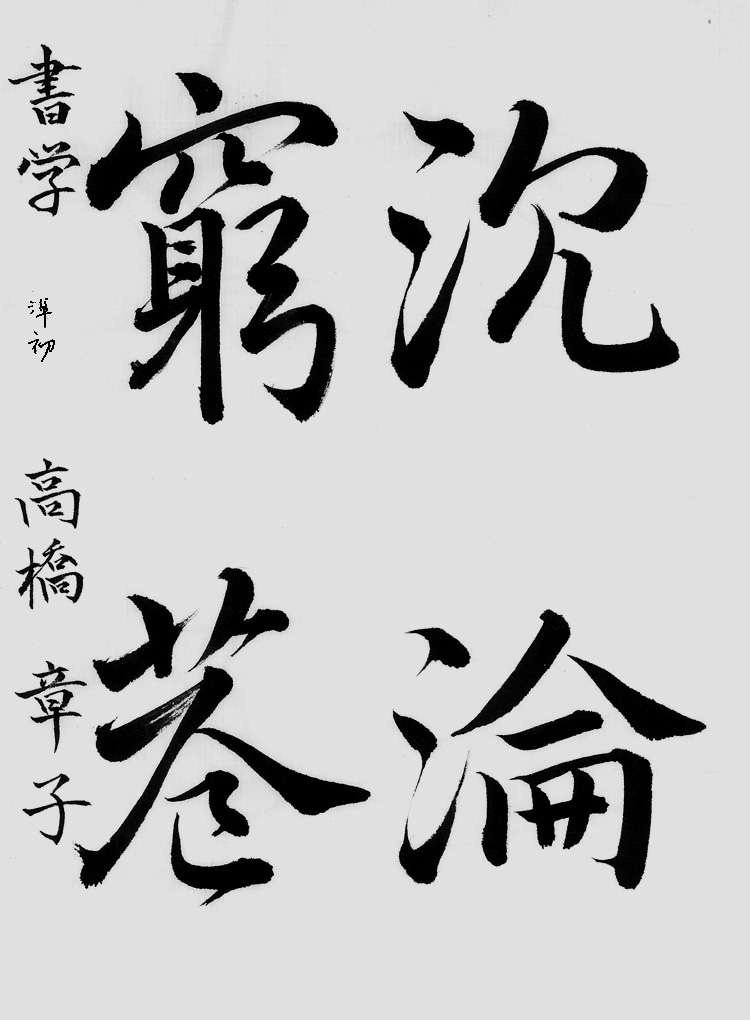 沈淪
窮巷
書学 準初 高橋 章子